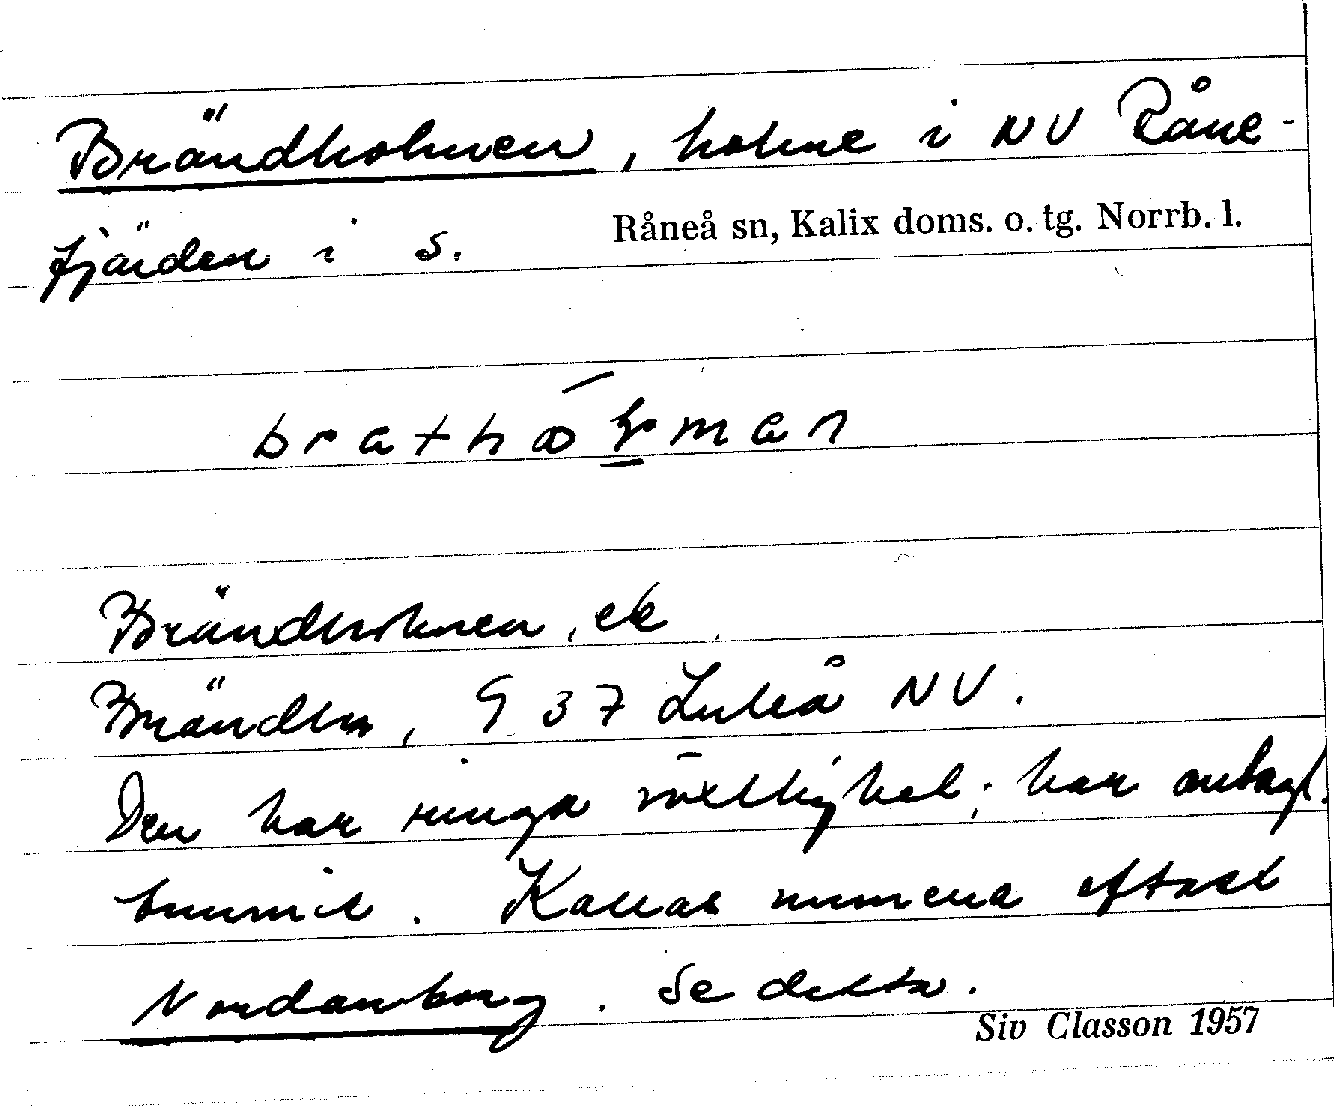 Brändholmen, holme i NV Råne-
fjärden i S.
Råneå sn, Kalix doms. o. tg. Norrb. l.
Brändholmen, ek
Brändhn, G 37 Luleå NV.
Den har ringa växtlighet; har antagl.
brunnit. Kallas numera oftast
Nordanborg. Se detta.
Siv Classon 1957